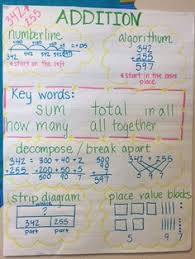 342+
255
ADDITION
numberline
*start on the left
algorithm
342
+ 255
597
*start in the ones
place
Key words:
sum total in all
how many all together
decompose / break apart
342 = 300 + 40 + 2
+ 255 = 200 + 50 + 5
500 + 90 + 7
500
90
+ 7
597
342 + 255
strip diagram
?
342 255
part part
place value blocks
5 9 7